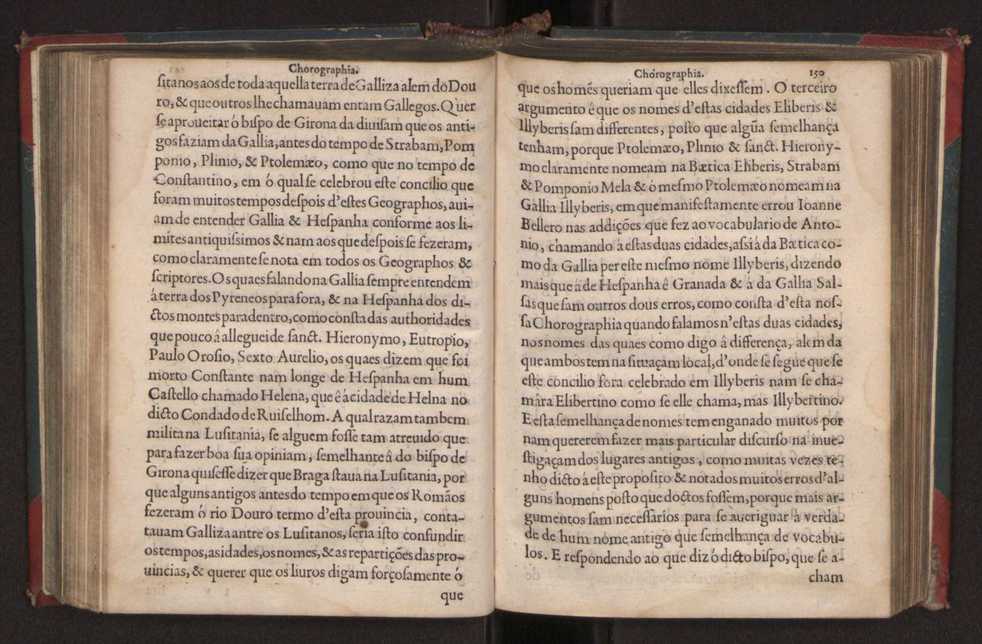 Chorographia.
ſitanos aos de toda aquella terra de Galliza alem do Dou
ro, & que outros lhe chamauam entam Gallegos. Quer
ſe aproueitar ó biſpo de Girona da diuiſam que os anti-
gos faziam da Gallia, antes do tempo de Strabam, Pom
ponio, Plinio, & Ptolemæo, como que no tempo de
Conſtantino, em ó qual ſe celebrou eſte concilio que
foram muitos tempos deſpois d'eſtes Geographos, aui-
am de entender Gallia & Heſpanha conforme aos li-
mites antiquiſsimos & nam aos que deſpois ſe fezeram,
como claramente ſe nota em todos os Geographos &
ſcriptores. Os quaes falando na Gallia ſempre entendem
á terra dos Pyreneos para fora, & na Heſpanha dos di-
ctos montes para dentro, como conſta das authoridades
que pouco á alleguei de ſanct. Hieronymo, Eutropio,
Paulo Oroſio, Sexto Aurelio, os quaes dizem que foi
morto Conſtante nam longe de Heſpanha em hum
Caſtello chamado Helena, que é á cidade de Helna no
dicto Condado de Ruiſelhom. A qual razam tambem
milita na Luſitania, ſe alguem foſſe tam atreuido que
para fazer boa ſua opiniam, ſemelhante á do biſpo de
Girona quiſeſſe dizer que Braga ſtaua na Luſitania, por
que alguns antigos antes do tempo em que os Romãos
fezeram ó rio Douro termo d'eſta prouincia, conta-
tauam Galliza antre os Luſitanos, ſeria iſto confundir
os tempos, as idades, os nomes, & as repartições das pro-
uincias, & querer que os liuros digam forçoſamente ó
que
Chorographia. 150
que os homẽs queriam que elles dixeſſem. O terceiro
argumento é que os nomes d'eſtas cidades Eliberis &
Illyberis ſam differentes, poſto que algũa ſemelhança
tenham, porque Ptolemæo, Plinio & ſanct. Hierony-
mo claramente nomeam na Bætica Eliberis, Strabam
& Pomponio Mela & ó meſmo Ptolemæo nomeam na
Gallia Illyberis, em que manifeſtamente errou Ioanne
Bellero nas addições que fez ao vocabulario de Anto-
nio, chamando á eſtas duas cidades, aſsi á da Bætica co-
mo da Gallia per eſte meſmo nome Illyberis, dizendo
mais que á de Heſpanha é Granada & á da Gallia Sal-
ſas que ſam outros dous erros, como conſta d'eſta noſ-
ſa Chorographia quando falamos n'eſtas duas cidades,
nos nomes das quaes como digo á differença, alem da
que ambos tem na ſituaçam local, d'onde ſe ſegue que ſe
eſte concilio fora celebrado em Illyberis nam ſe cha-
mára Elibertino como ſe elle chama, mas Illybertino.
E eſta ſemelhança de nomes tem enganado muitos por
nam quererem fazer mais particular diſcurſo na inue-
ſtigaçam dos lugares antigos, como muitas vezes te-
nho dicto á eſte propoſito & notados muitos erros d'al-
guns homens poſto que doctos foſſem, porque mais ar-
gumentos ſam neceſſarios para ſe aueriguar á verda-
de de hum nome antigo que ſemelhança de vocabu-
los. E reſpondendo ao que diz ó dicto biſpo, que ſe a-
cham